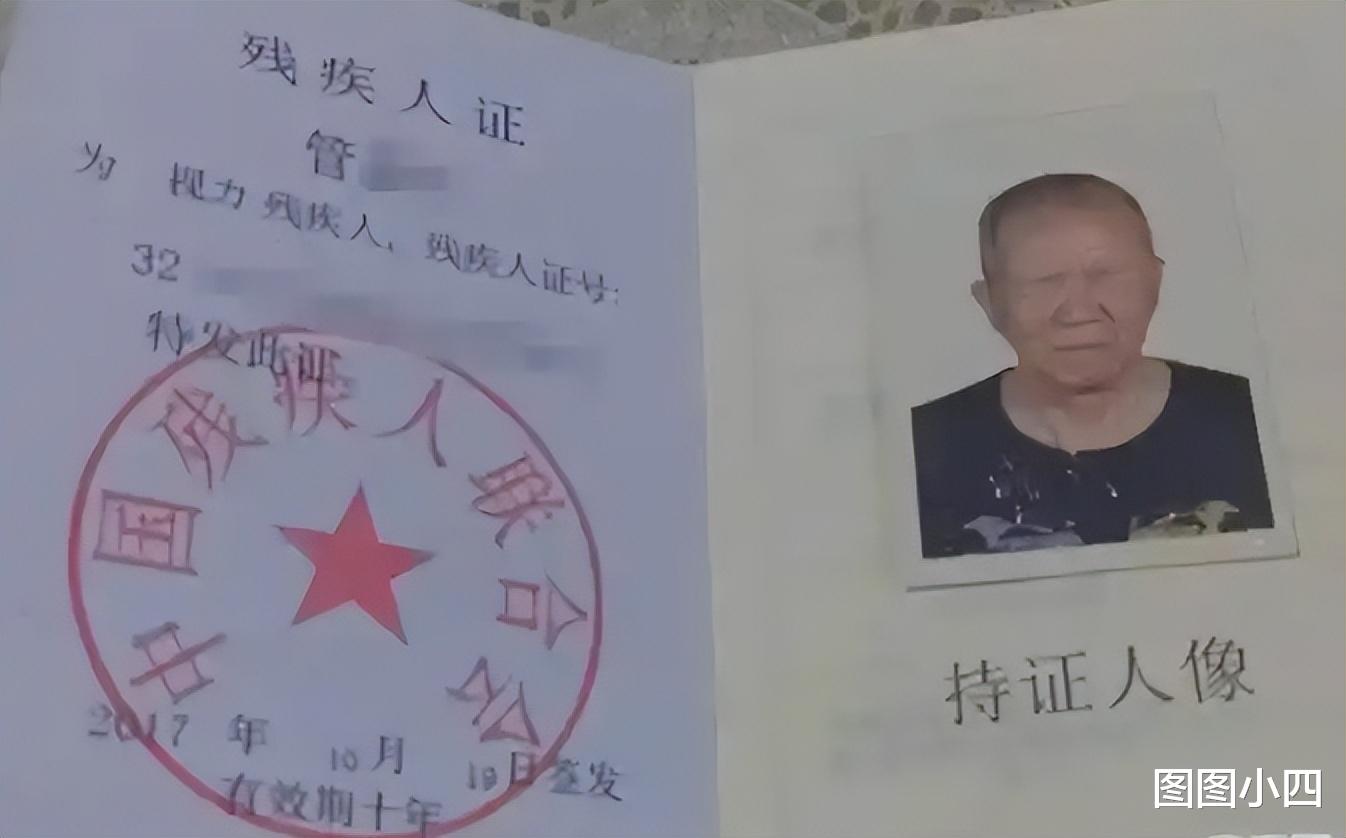 残疾人证
管
为 视力残疾人，残疾人证号：
32
特发此证
中国残疾人联合会
2017 年 10 月 19 日签发
有效期十年
持证人像
图图小四